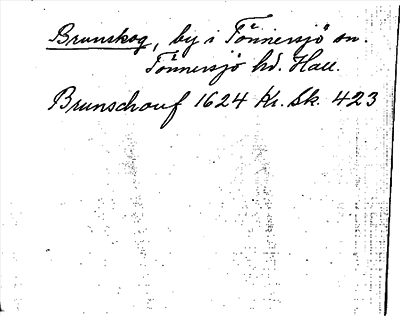 Brunskog, by i Tönnersjö sn.
Tönnersjö hd. Hall.
Brunschouf 1624 Kr. Sk. 423